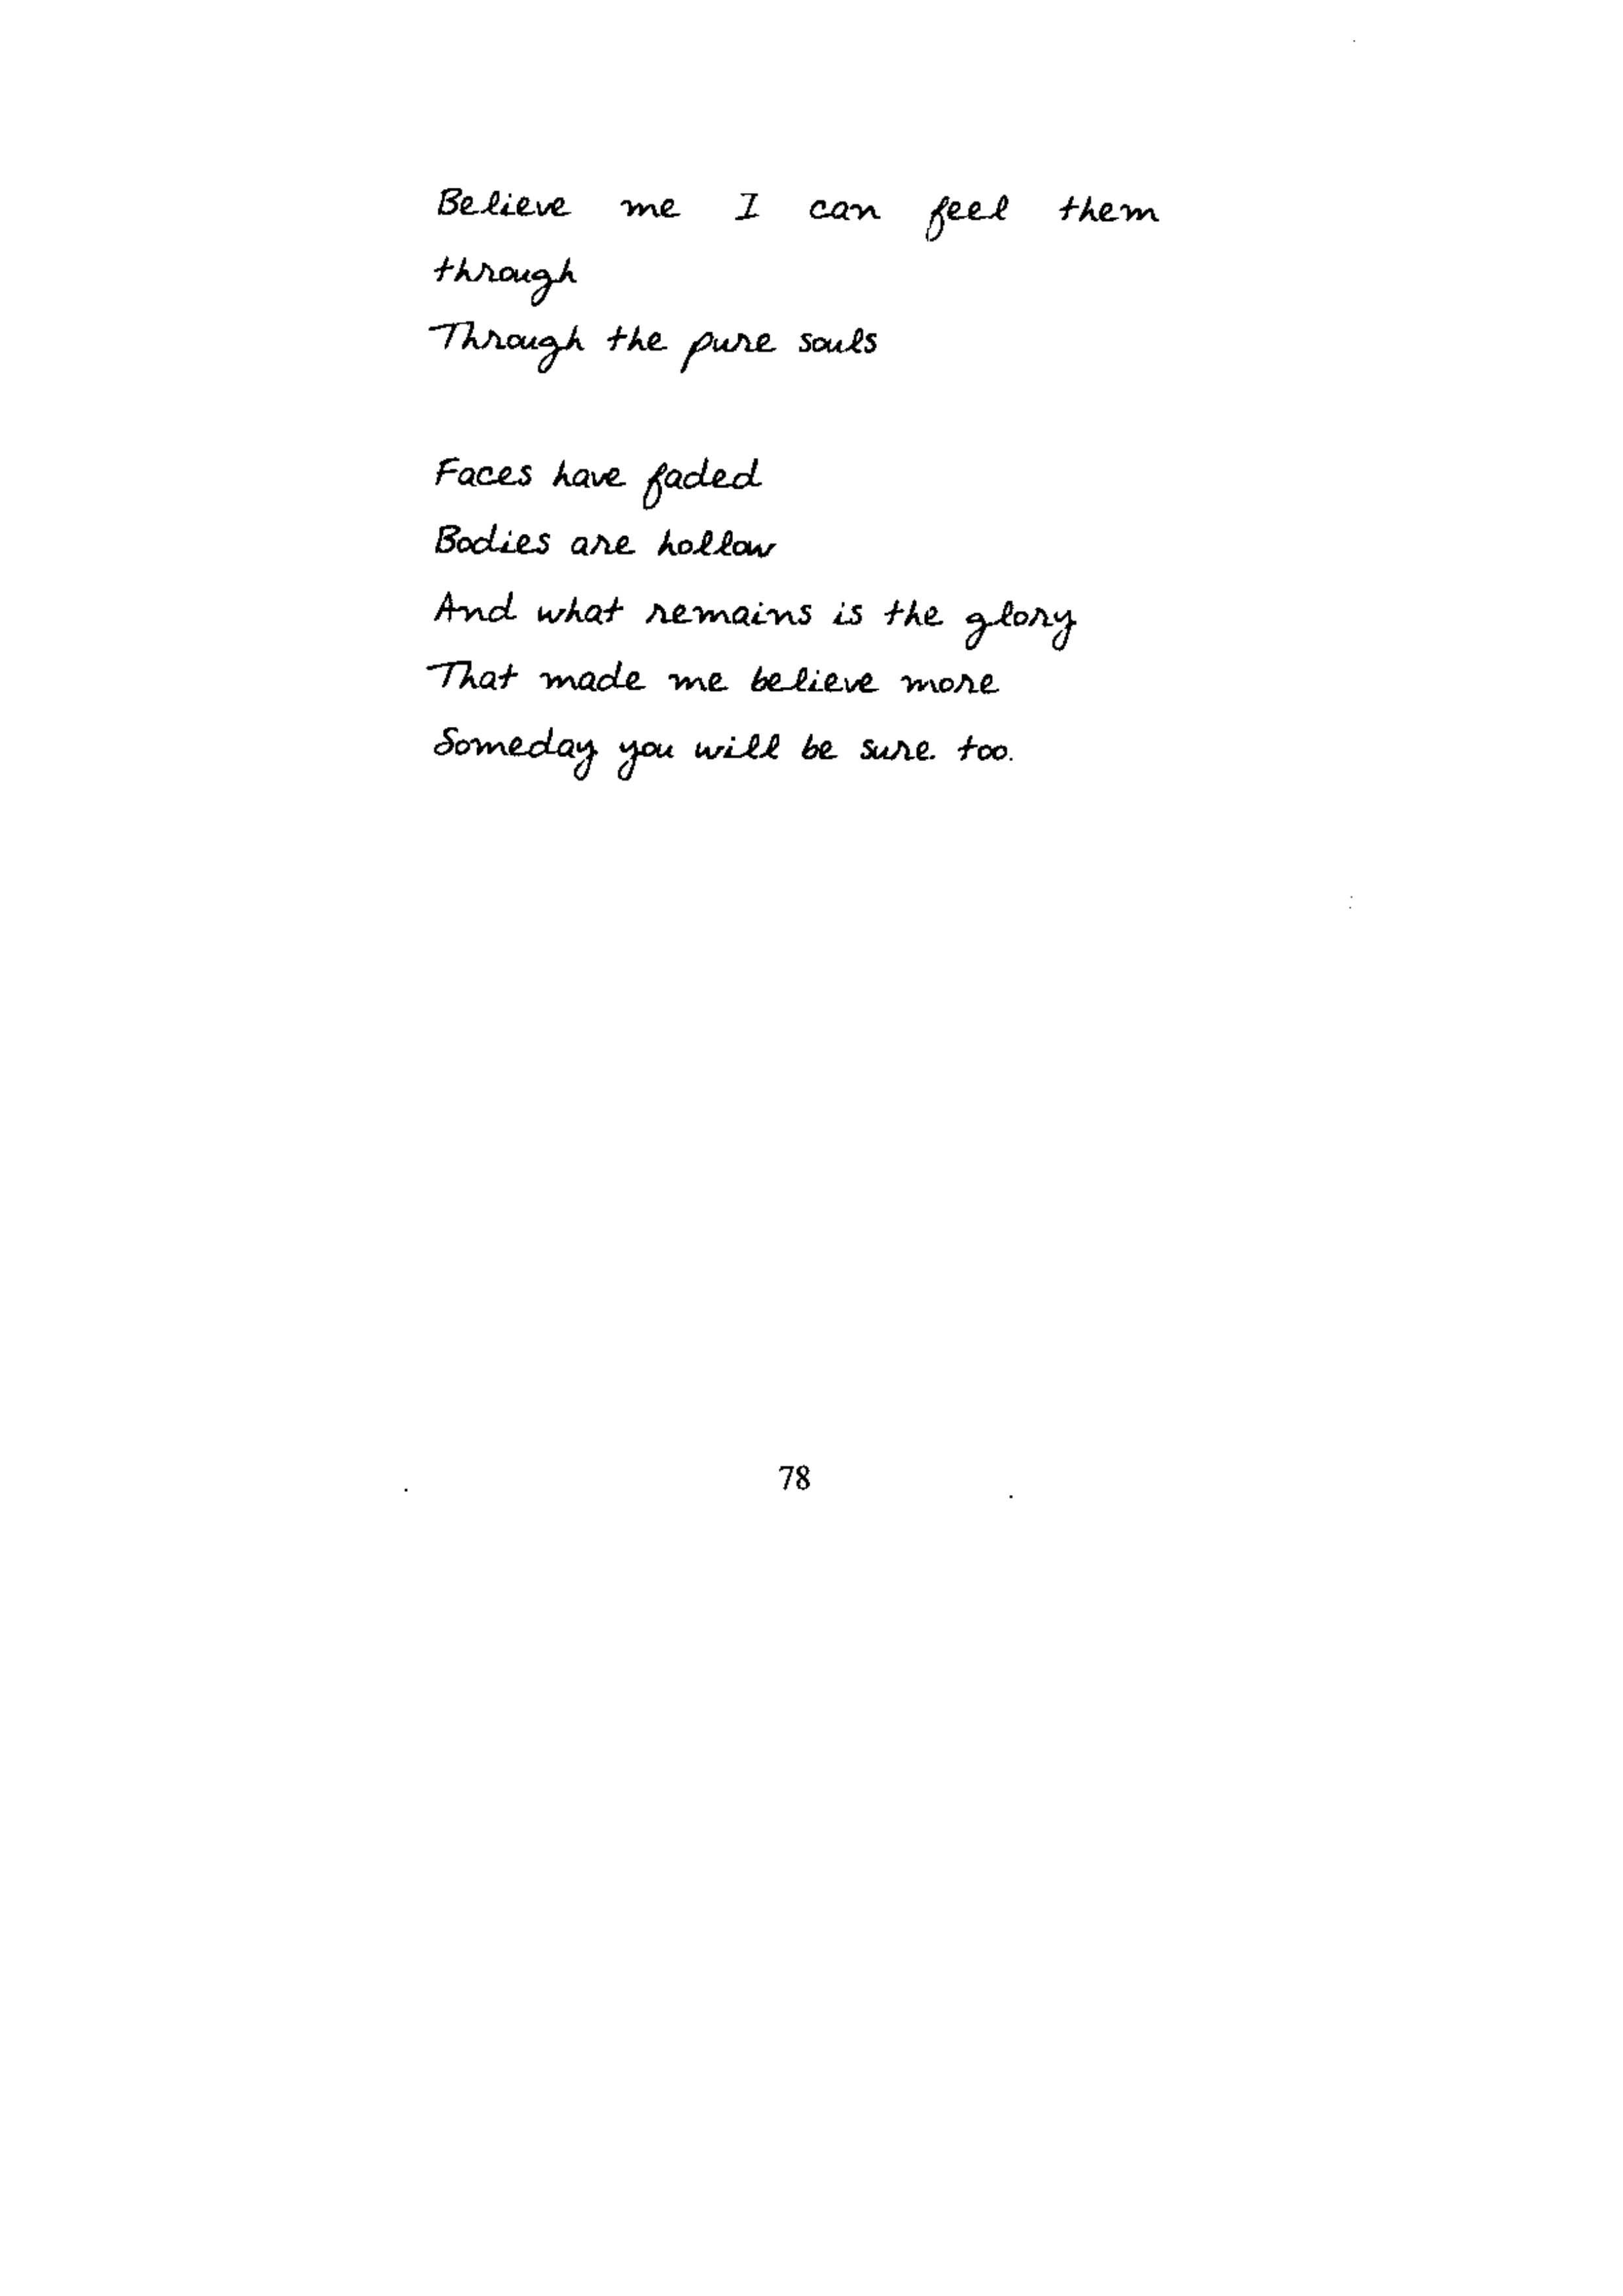 Believe me I can feel them
through
Through the pure souls
Faces have faded
Bodies are hollow
And what remains is the glory
That made me believe more
Someday you will be sure too.
78